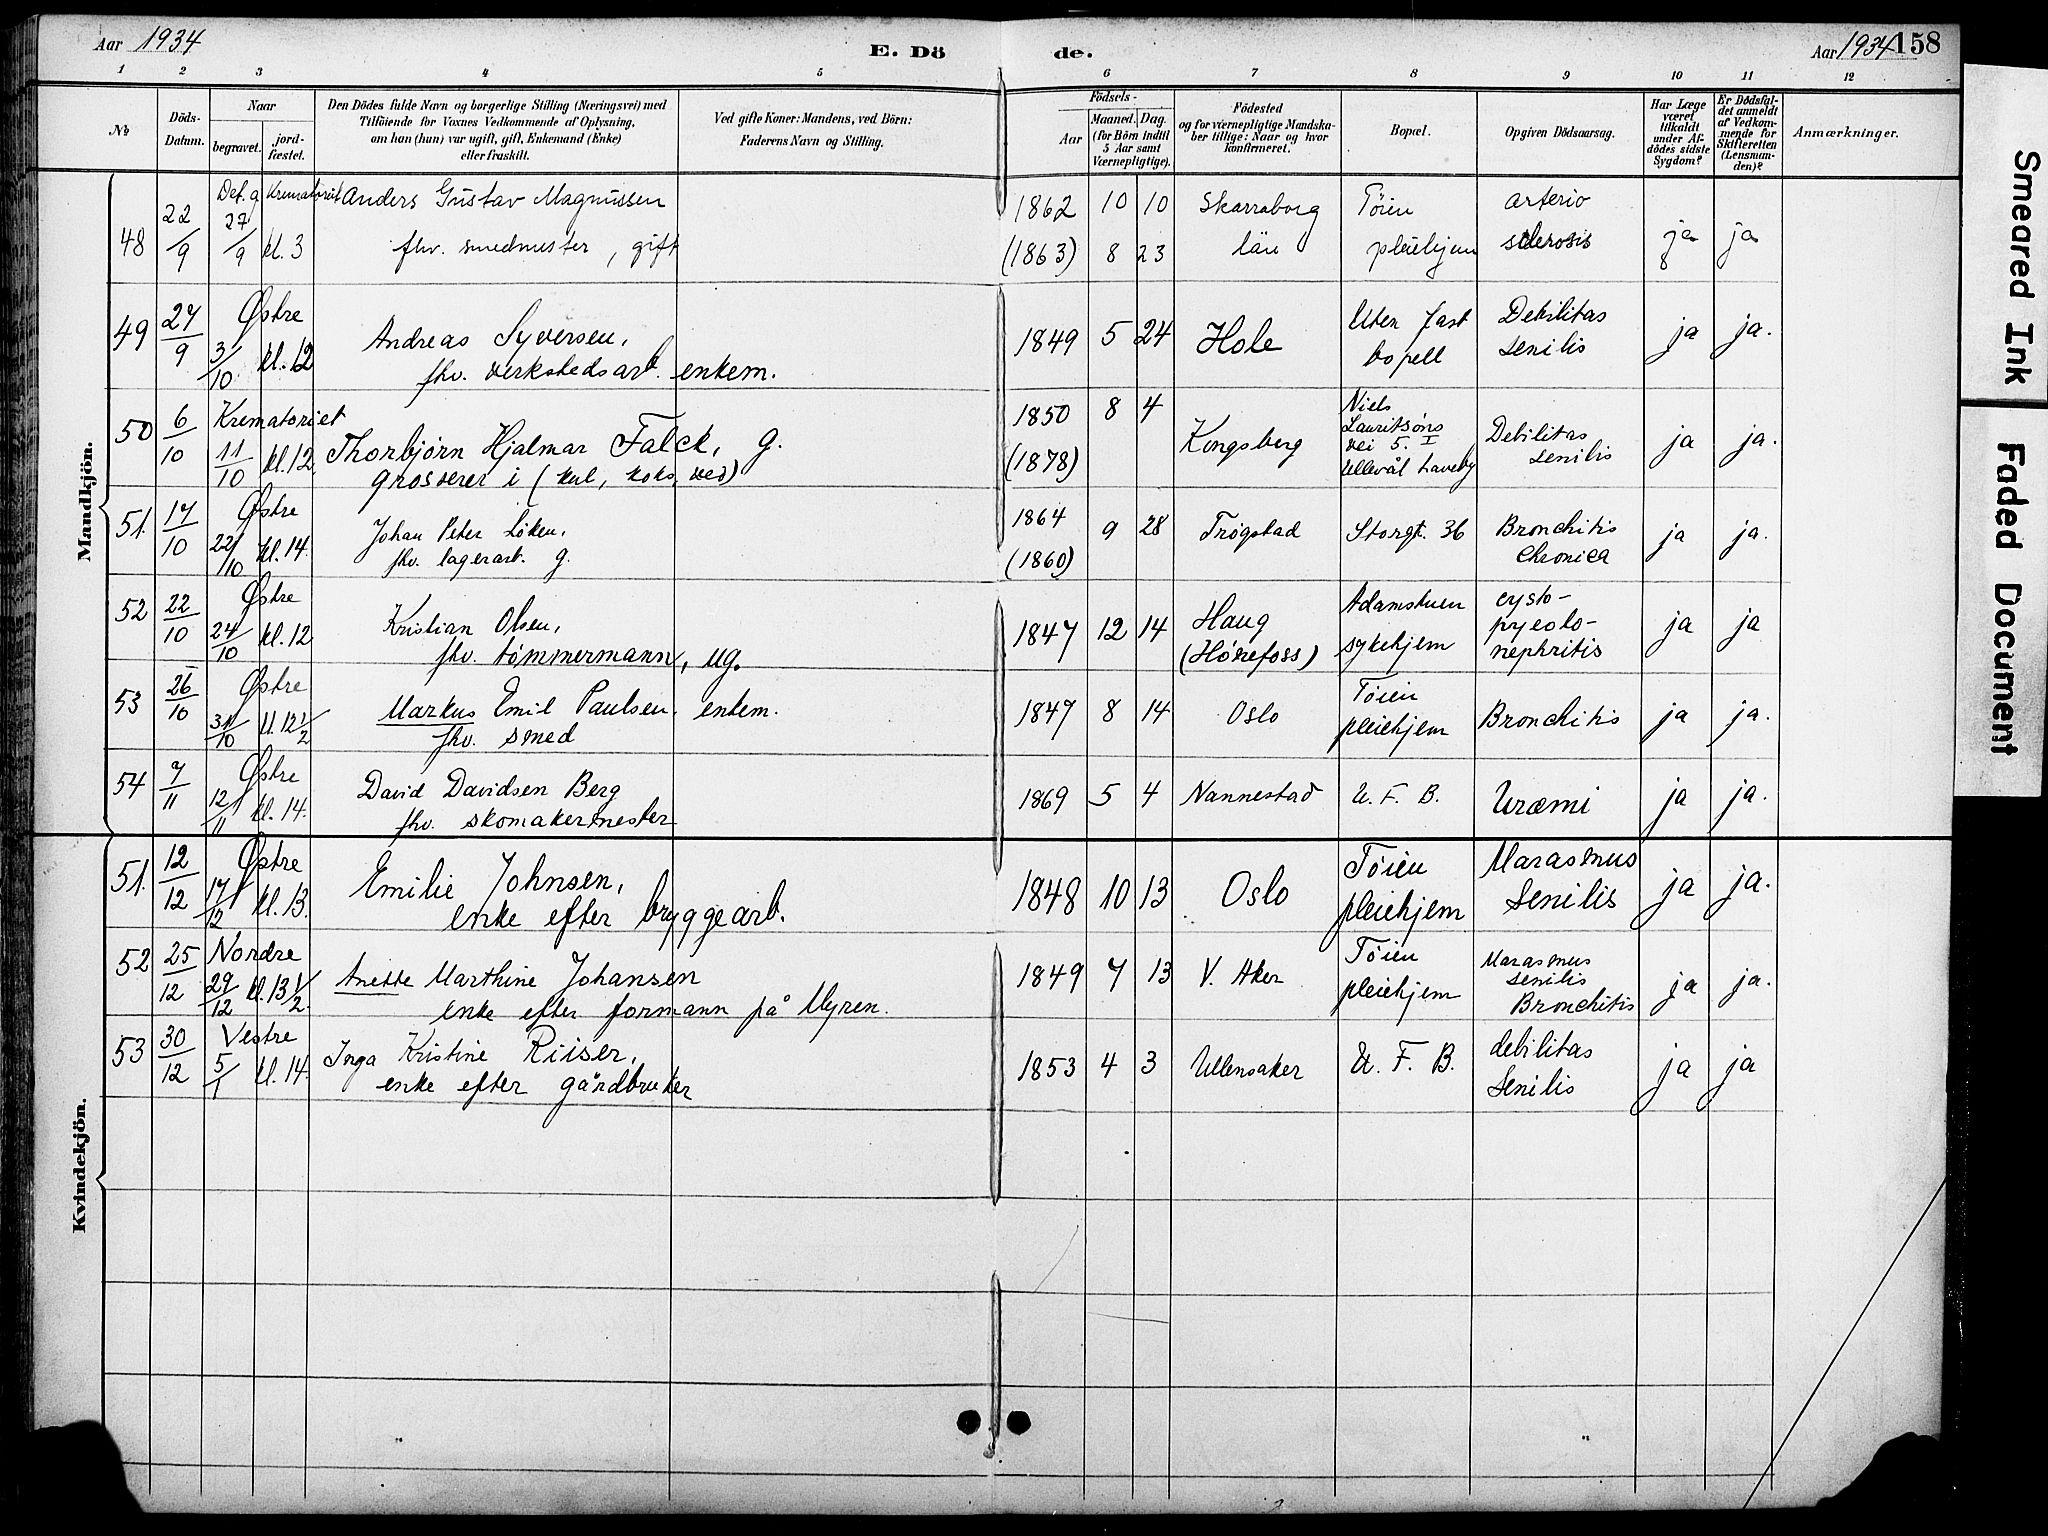 Aar 1934 E. Dö de. Aar 1934 158
1 2 3 4 5 6 7 8 9 10 11 12
№ Döds-Datum. Naar begravet. jord-fæstet. Den Dödes fulde Navn og borgerlige Stilling (Næringsvei) med Tilföiende for Voxnes Vedkommende af Oplysning, om han (hun) var ugift, gift, Enkemand (Enke) eller fraskilt. Ved gifte Koner: Mandens, ved Börn: Faderens Navn og Stilling. Födsels- Aar Maaned. Dag. (for Börn indtil 5 Aar samt Værnepligtige). Födested og for værnepligtige Mandska-ber tillige: Naar og hvor konfirmeret. Bopæl. Opgiven Dödsaarsag. Har Læge været tilkaldt under Af-dödes sidste Sygdom? Er Dödsfal-det anmeldt af Vedkom-mende for Skifteretten (Lensman-den)? Anmærkninger.
Mandkjön.
Det g. Krematoriet Anders Gustav Magnussen 1862 10 10 Skarraborg Töien arterio
48 22/9 27/9 kl. 3 fhv. smedmester, gift (1863) 8 23 län pleiehjem sclerosis ja ja
49 27/9 Østre 3/10 kl. 12 Andreas Syversen, 1849 5 24 Hole Uten fast Debilitas ja ja.
fhv. verkstedsarb. enkem. bopell senilis
50 6/10 Krematoriet 1850 8 4 Niels
11/10 kl. 12 Thorbjørn Hjalmar Falck, g. (1878) Kongsberg Lauritsøns vei 5. I Debilitas ja ja.
grosserer i (kul, koks, ved) Ullevål haveby senilis
51. 17/10 Østre 22/10 kl. 14. Johan Peter Løken, 1864 9 28 Trøgstad Storgt. 36 Bronchitis ja ja.
fhv. lagerarb. g. (1860) Chronica
52 22/10 Østre 24/10 kl. 12 Kristian Olsen, 1847 12 14 Haug Adamstuen cysto-pyeolo- ja ja
fhv. tømmermann, ug. (Hønefoss) sykehjem nephritis
53 26/10 Østre 31/10 kl. 12 1/2 Markus Emil Paulsen. enkem. 1847 8 14 Oslo Tøien Bronchitis ja ja.
fhv. smed pleiehjem
54 7/11 Østre 12/11 kl. 14. David Davidsen Berg 1869 5 4 Nannestad U. F. B. Uræmi ja ja.
fhv. skomakermester
Kvindekjön.
51. 12/12 Østre 17/12 kl. 13. Emilie Johnsen, 1848 10 13 Oslo Tøien Marasmus ja ja.
enke efter bryggearb. pleiehjem Senilis
52 25/12 Nordre 29/12 kl. 13 1/2. Anette Marthine Johansen 1849 7 13 V. Aker Tøien Marasmus senilis ja ja.
enke efter formann på Myren. pleiehjem Bronchitis
53 30/12 Vestre 5/1 kl. 14. Inga Kristine Riiser, 1853 4 3 Ullensaker U. F. B. debilitas ja ja
enke efter gårdbruker Senilis
Smeared Ink
Faded Document